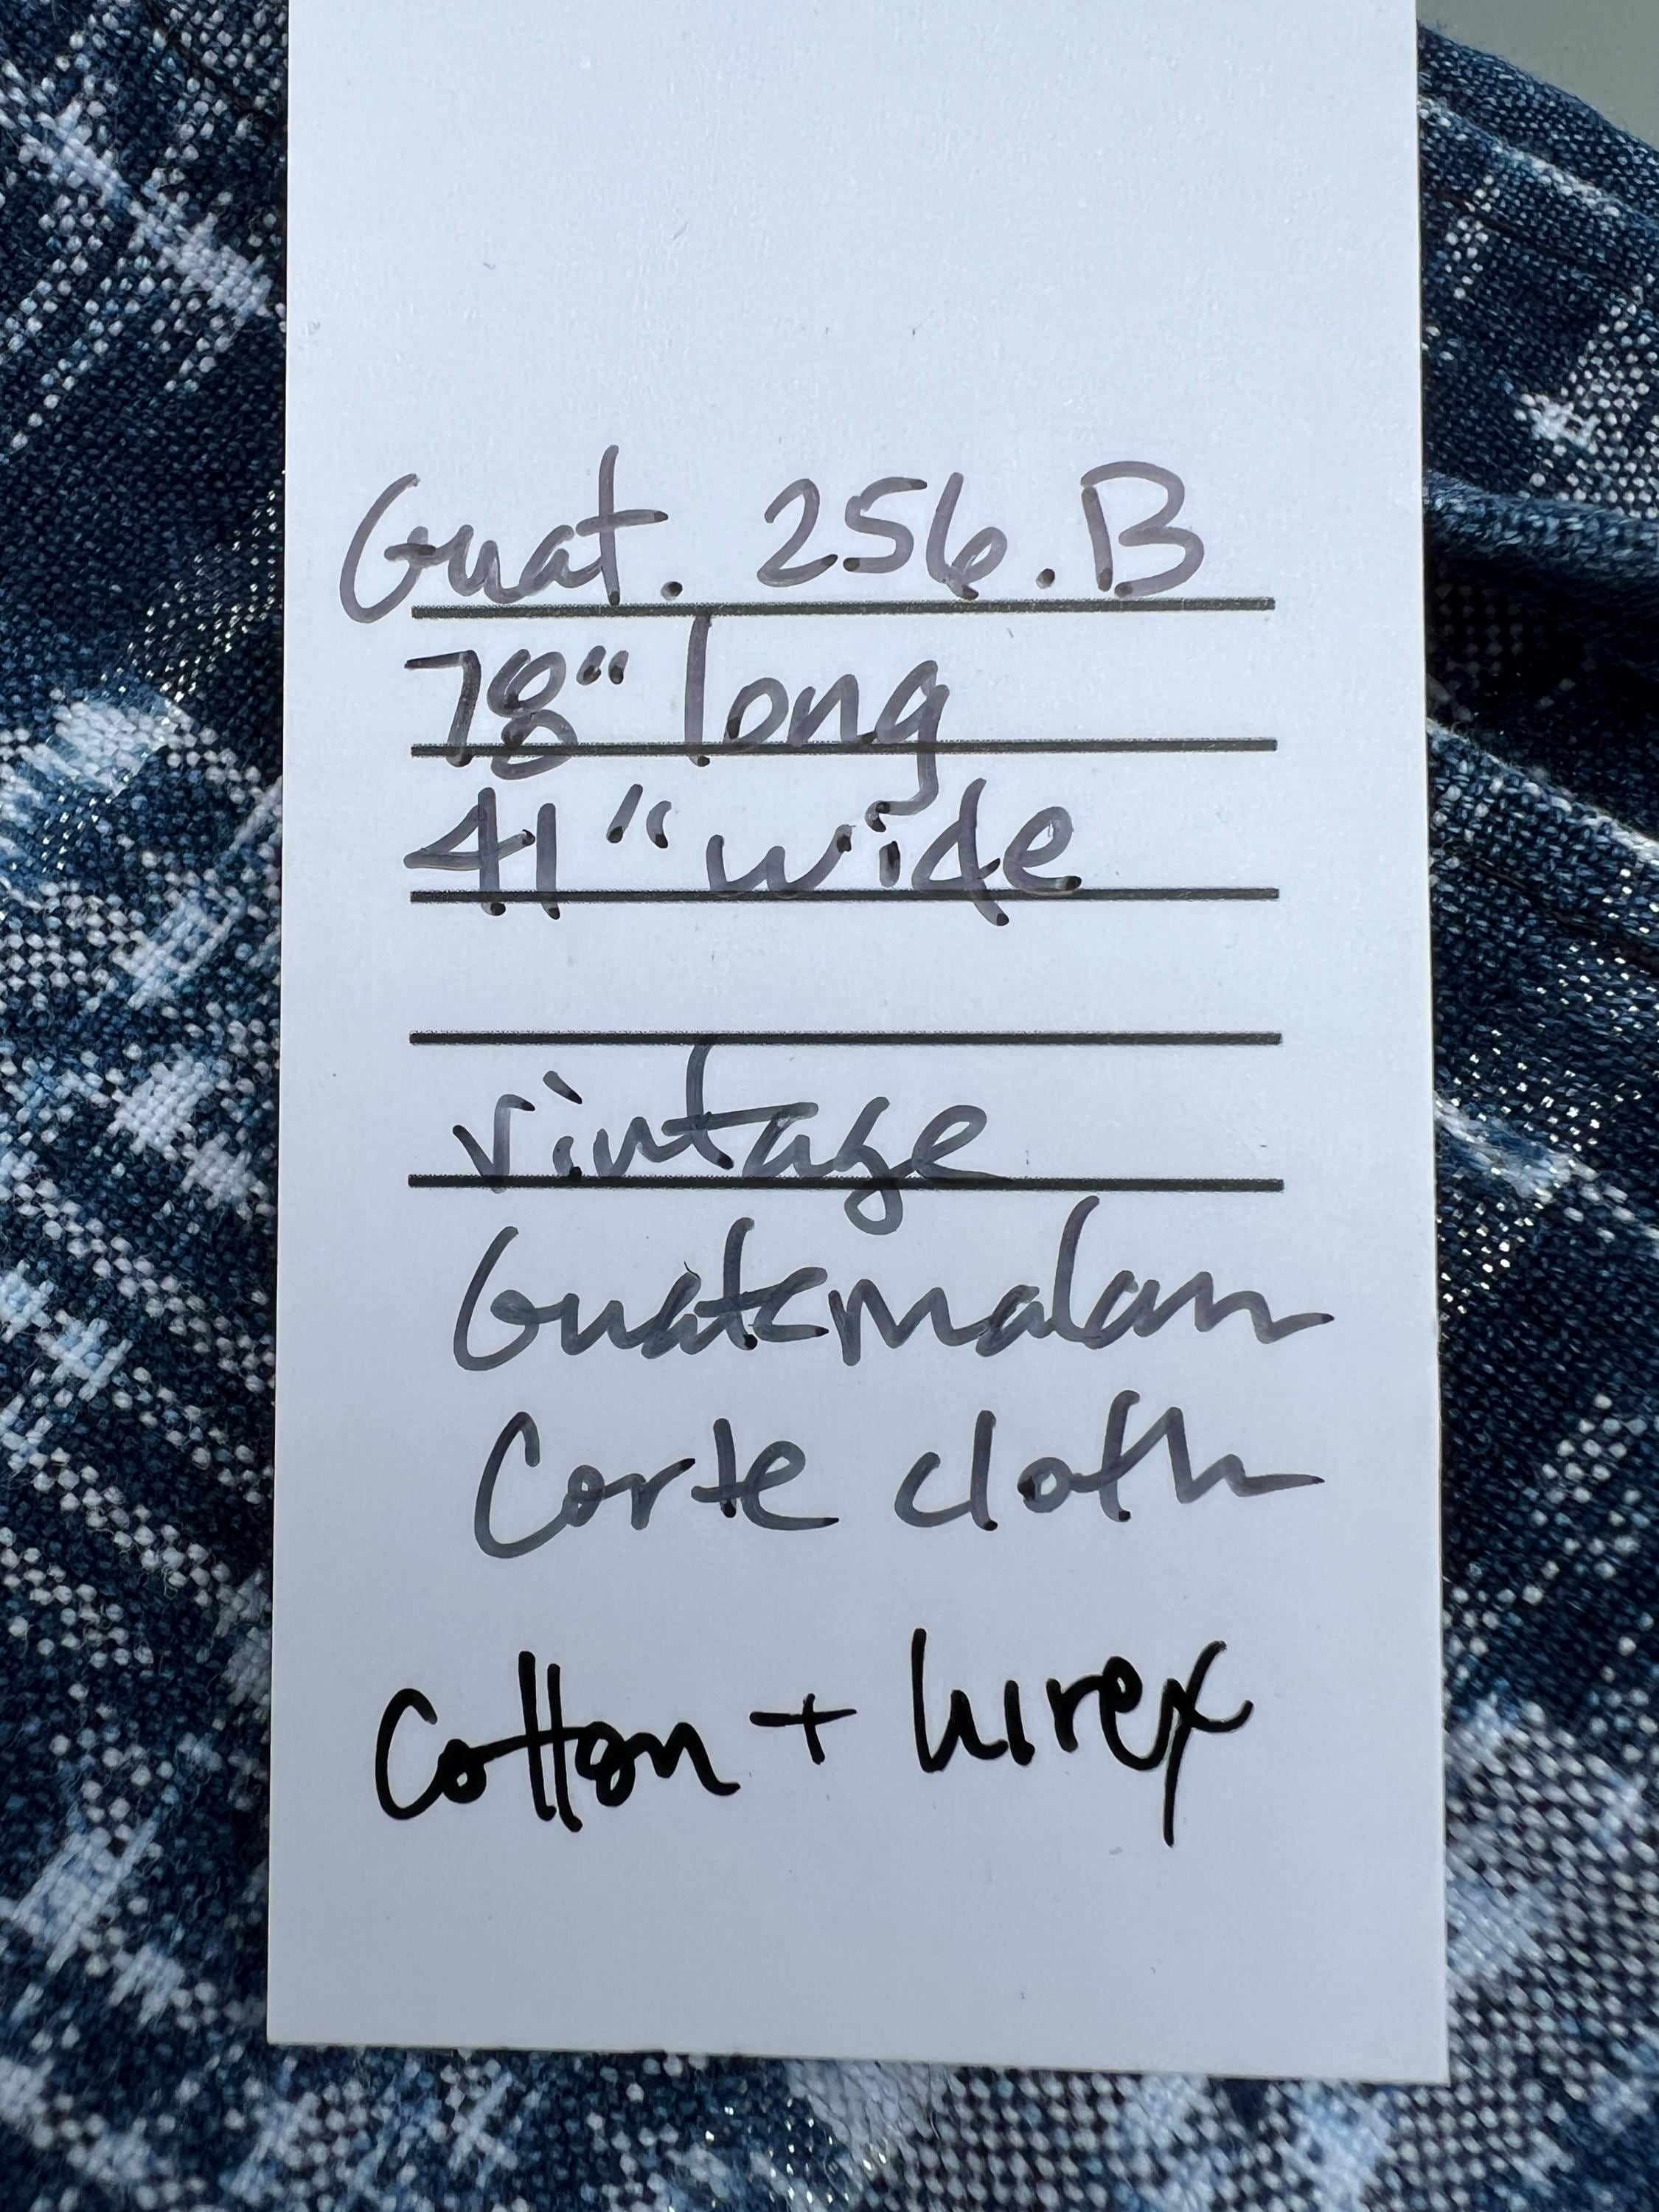 Guat. 256.B
78" long
41" wide
vintage
Guatemalan
Corte cloth
Cotton + lurex